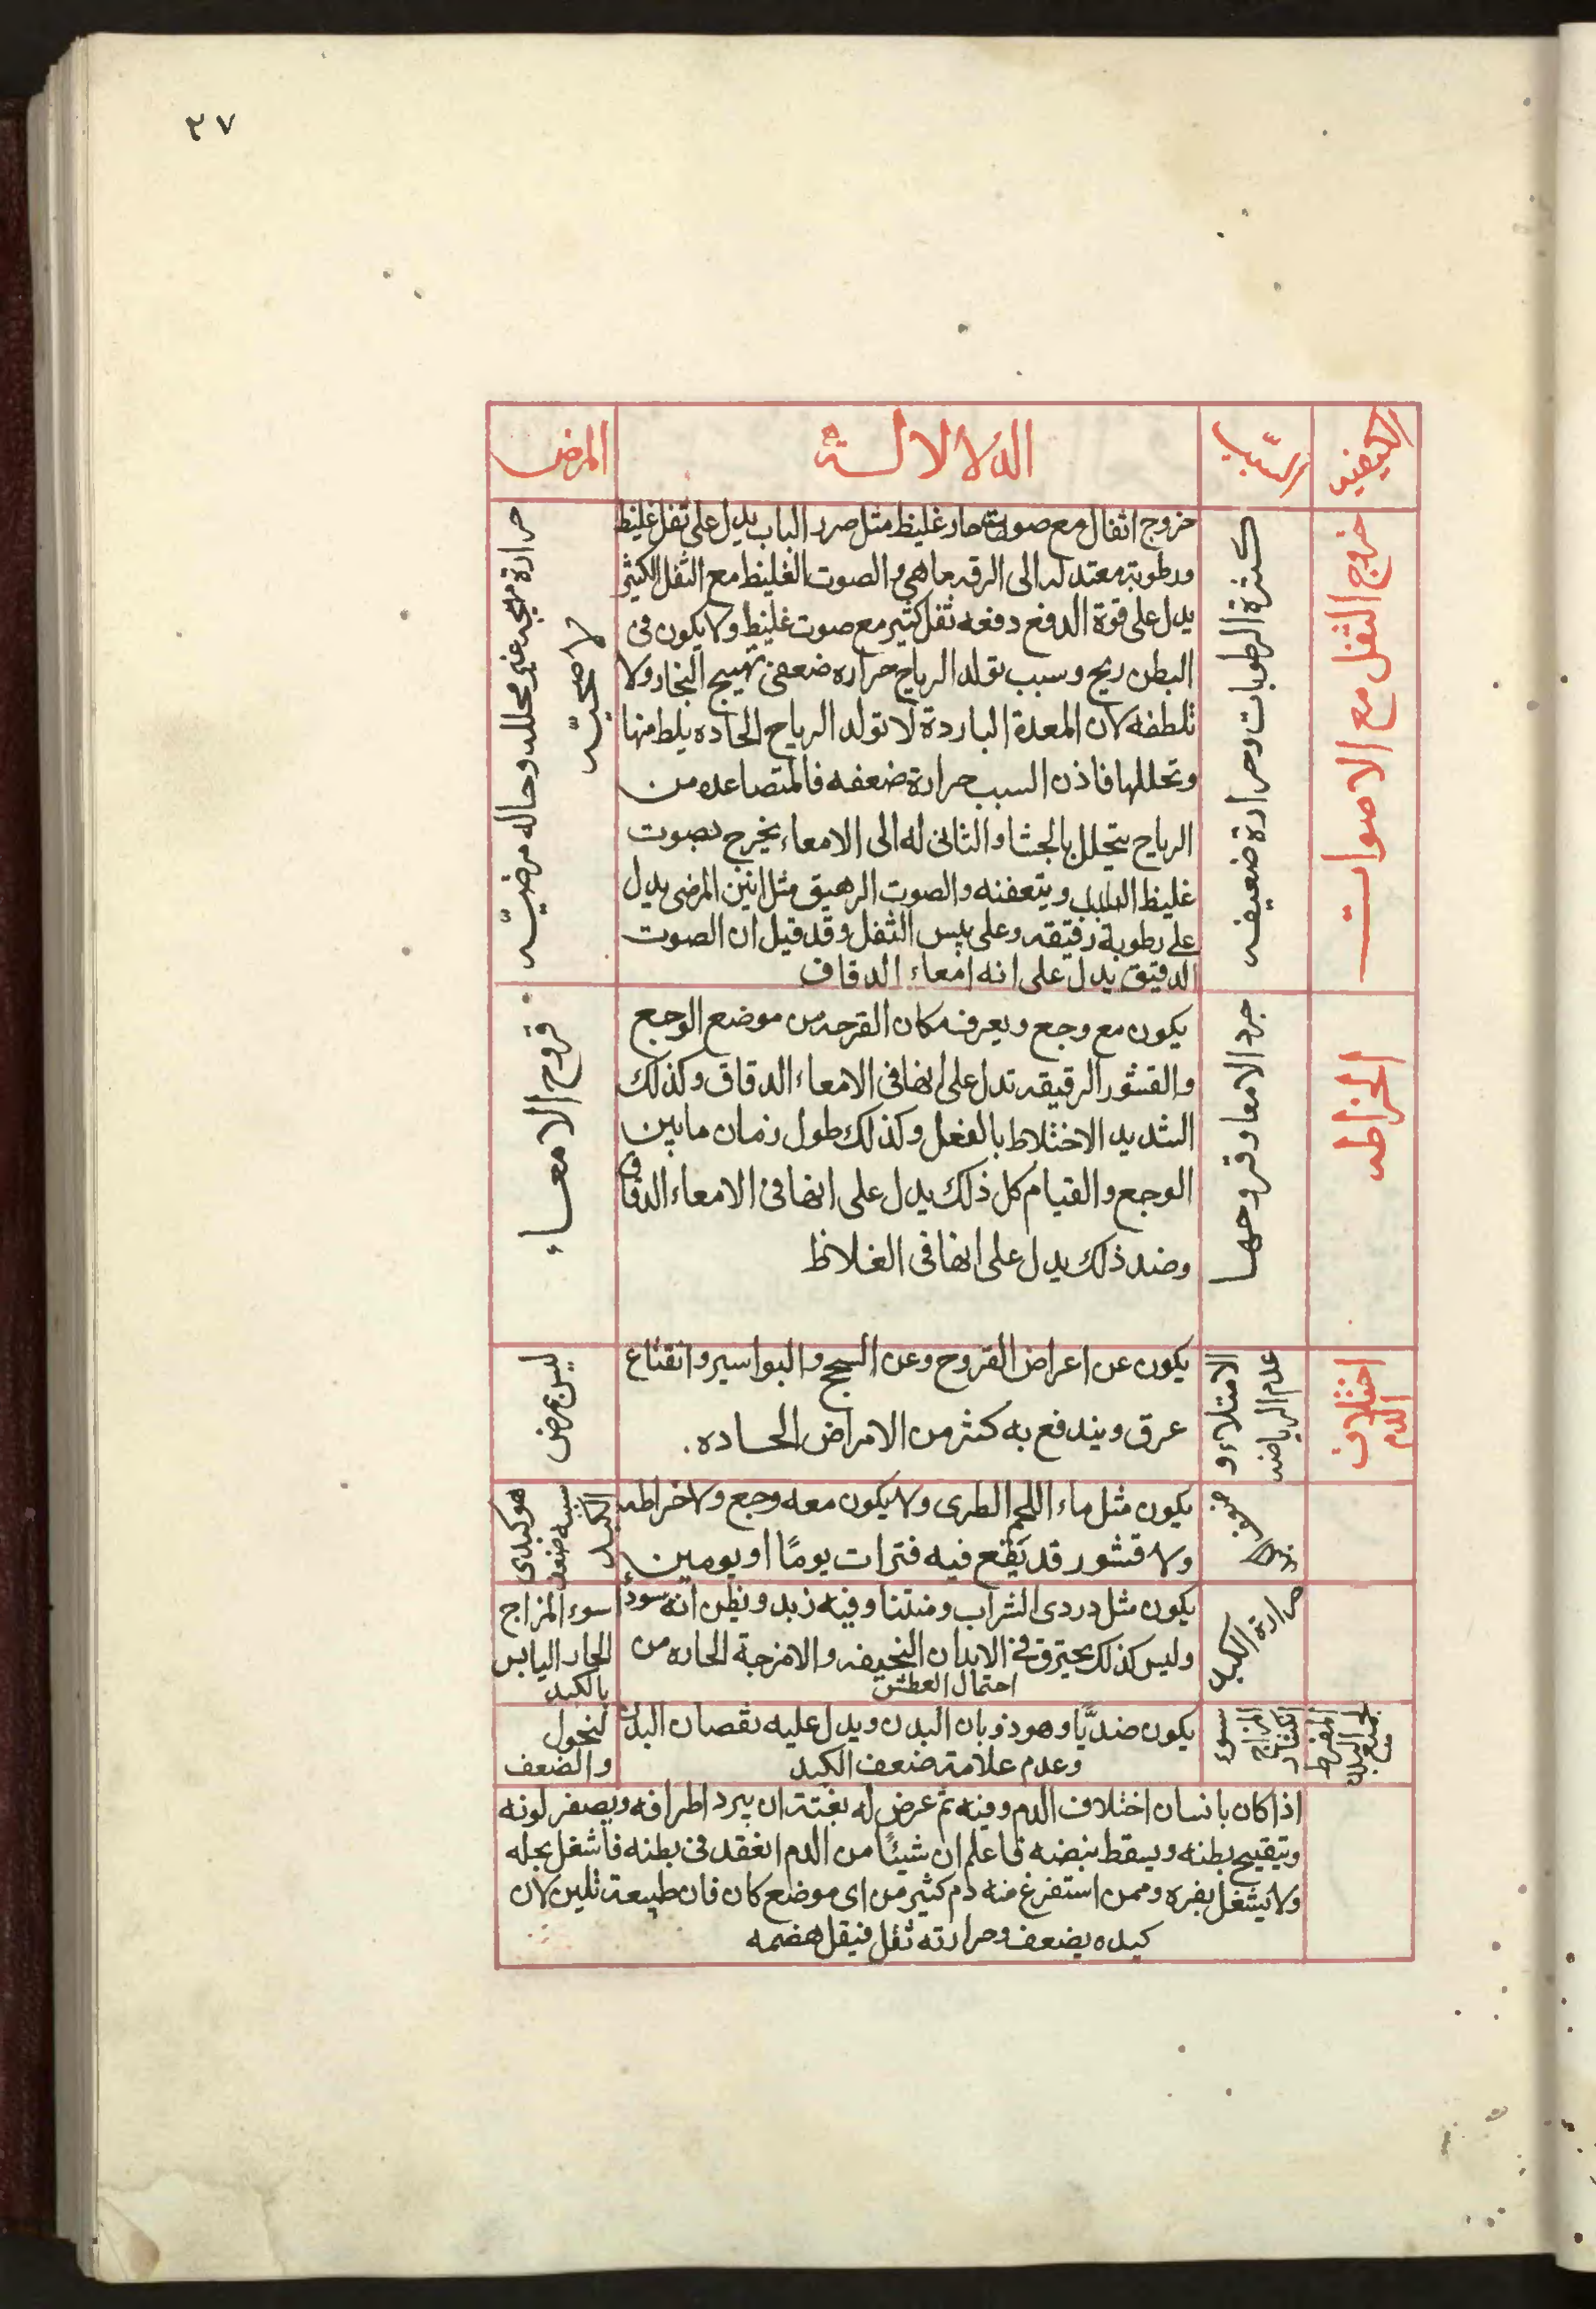 ٢٧
الكيفية
السبب
الدلالة
المرض
خروج الثفل مع الاصوات
كثرة الرطوبات وحرارة ضعيفه
خروج اثفال مع صوت حاد غليظ مثل صرر الباب يدل على ثفل غليظ
ورطوبة معتدله الى الرقه ما هي والصوت الغليظ مع الثفل الكثير
يدل على قوة الدفع دفعه ثفل كثير مع صوت غليظ ولا يكون فى
البطن ريح وسبب تولد الرياح حراره ضعفى تهييج البخار ولا
تلطفه لان المعدة الباردة لا تولد الرياح الحاده يلط منها
وتحللها فاذن السبب حرارة ضعفه فالمتصاعده من
الرياح يتحلل بالجشا والثانى له الى الامعاء يخرج بصوت
غليظ ويتعفنه والصوت الرهيق مثل انين المرضى يدل
على رطوبة رقيقه وعلى يبس الثفل وقد قيل ان الصوت
الدقيق يدل على انه امعاء الدقاف
حرارة مهيجه غير محلله وحاله مرضيّه
لا صحيّه
الخراطه
جرد الامعا وقروحها
يكون مع وجع ويعرف مكان القرحه من موضع الوجع
والقشور الرقيقه تدل على انها فى الامعاء الدقاق وكذلك
الشديد الاختلاط بالفعل وكذلك طول زمان ما بين
الوجع والقيام كل ذلك يدل على انها فى الامعاء الدقاق
وضد ذلك يدل على انها فى الغلاظ
قروح الامعاء
اختلاف
الدم
عدم الرياضه
الامتلاء و
يكون عن اعراض القروح وعن السحج والبواسير وانقتاع
عرق ويندفع به كثر من الامراض الحاده.
ليس بمرض
ضعف
الكبد
يكون مثل ماء اللحم الطرى ولا يكون معه وجع ولا خراطه
ولا قشور قد يقع فيه فترات يومًا او يومين
هو كبدى
سببه ضعف
الكبد
حرارة الكبد
يكون مثل دردى الشراب ومنتنا وفيه زبد ويظن انه سودا
وليس كذلك يحترق فى الابدان النحيفه والامزجة الحاره من
احتمال العطش
سوء المزاج
الحار اليابس
بالكبد
لجميع البدن
المفرط
سوء
المزاج
يكون ضديًّا وهو ذوبان البدن ويدل عليه نقصان البدن
وعدم علامة ضعف الكبد
لنحول
والضعف
اذا كان بانسان اختلاف الدم وفيه ثم عرض له بغتة ان يبرد اطرافه ويصفر لونه
ويتقيح بطنه ويسقط نبضه فاعلم ان شيئًا من الدم انعقد فى بطنه فاشغل بحله
ولا يشغل بغيره وممن استفرغ منه دم كثير من اى موضع كان فان طبيعة تلين لان
كبده يضعف وحرارته ثقل فيقل هضمه